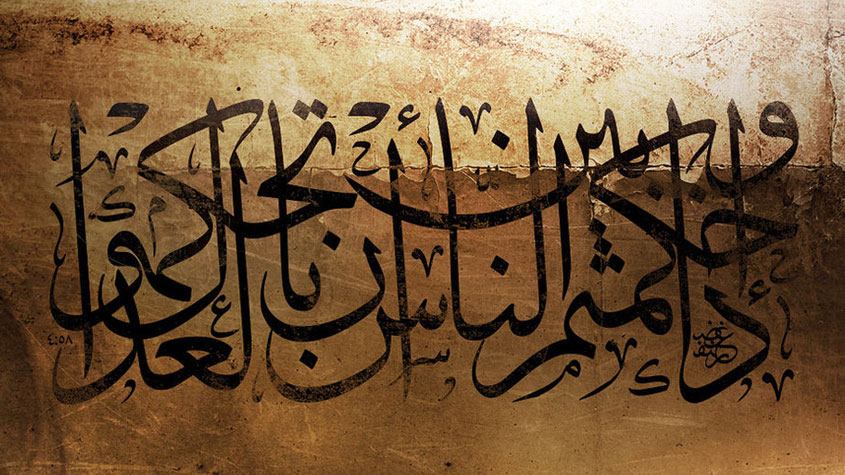 وإذا حكمتم بين الناس أن تحكموا بالعدل
٤:٥٨